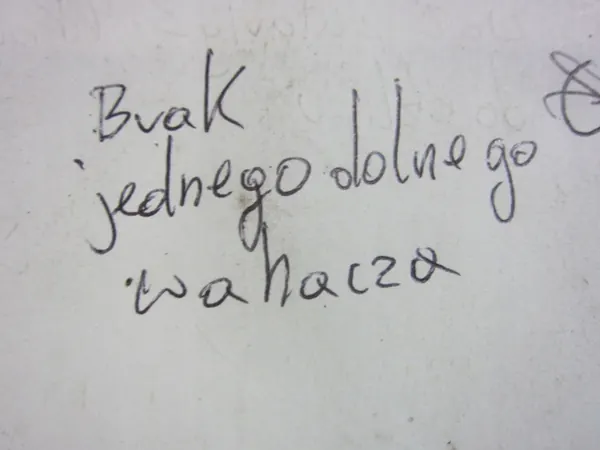 Brak
jednego dolnego
wahacza